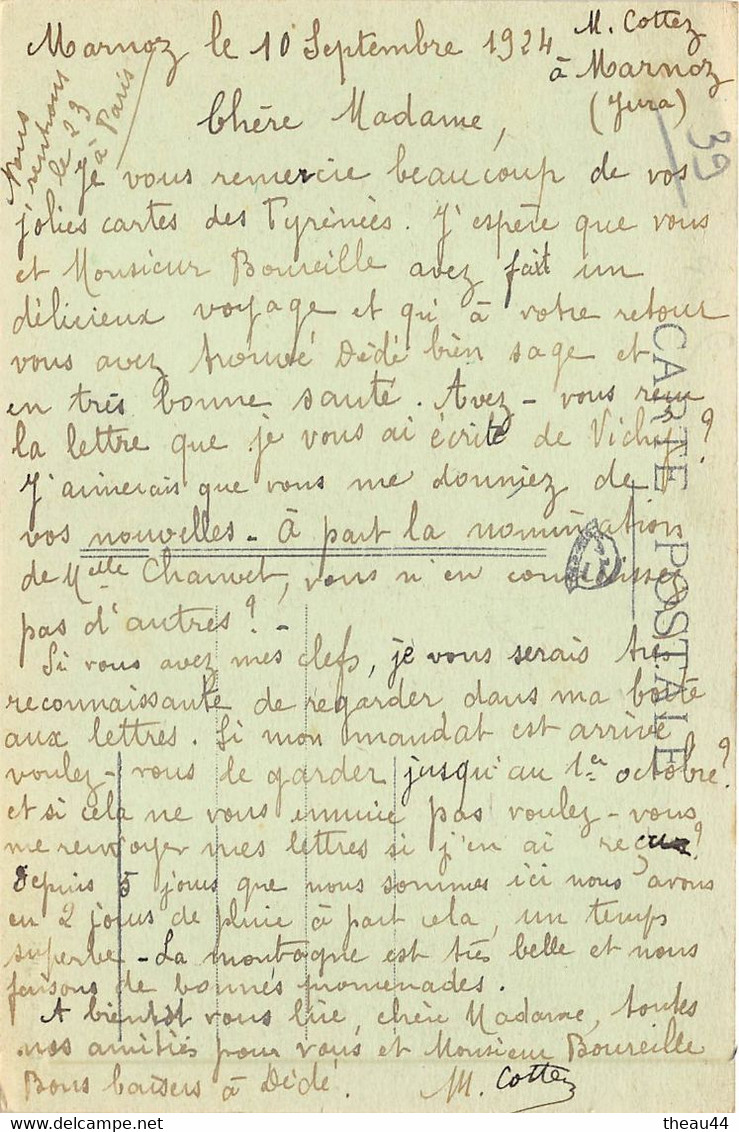 Marnoz le 10 Septembre 1924
M. Cottez
à Marnoz
(Jura)
39
Nous
rentrons
le 23
à Paris
Chère Madame,
Je vous remercie beaucoup de vos
jolies cartes des Pyrénées. J'espère que vous
et Monsieur Boureille avez fait un
délicieux voyage et qu'à votre retour
vous avez trouvé Dédé bien sage et
en très bonne santé. Avez-vous reçu
la lettre que je vous ai écrite de Vichy?
J'aimerais que vous me donniez de
vos nouvelles - À part la nomination
de Melle Chauvet, vous n'en connaissez
pas d'autres? -
Si vous avez mes clefs, je vous serais très
reconnaissante de regarder dans ma boîte
aux lettres. Si mon mandat est arrivé
voulez-vous le garder jusqu'au 1er octobre?
et si cela ne vous ennuie pas voulez-vous
me renvoyer mes lettres si j'en ai reçu?
Depuis 5 jours que nous sommes ici nous avons
eu 2 jours de pluie à part cela, un temps
superbe - La montagne est très belle et nous
faisons de bonnes promenades.
A bientôt vous lire, chère Madame, toutes
nos amitiés pour vous et Monsieur Boureille
Bons baisers à Dédé. M. Cottez
CARTE POSTALE
theau44